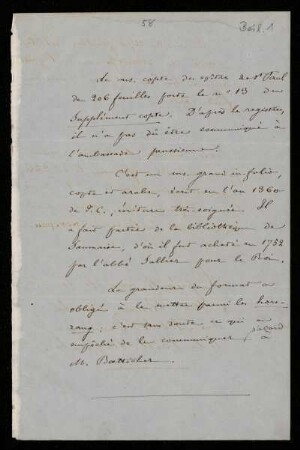 58
Beil. 1
Le ms. copte des épitres de St Paul
de 206 feuilles porte le no 13 du
Supplément copte. D'après le registre,
il n'a pas dû être communiqué à
l'ambassade prussienne.
C'est un ms. grand in folio,
copte et arabe, écrit en l'an 1360
de J. C., écriture très soignée. Il
a fait partie de la bibliothèque de
d'où il fut acheté en 1752
par l'abbé pour le Roi.
La grandeur du format a
obligé à le mettre parmi les hors
rang; c'est sans doute ce qui a
empêché de le communiquer
à
M. Boetticher.